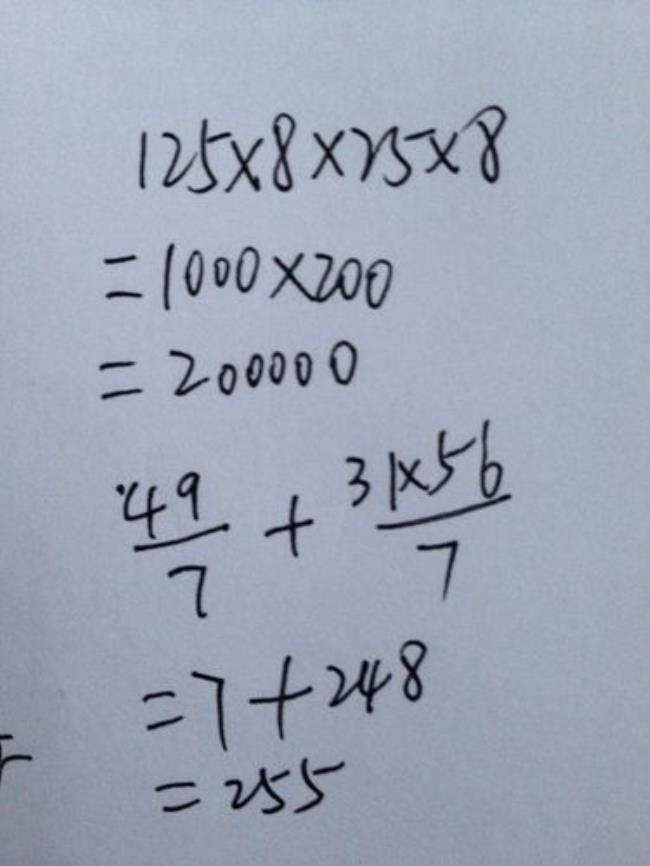 125×8×25×8
=1000×200
=200000
49/7 + 31×56/7
=7+248
=255